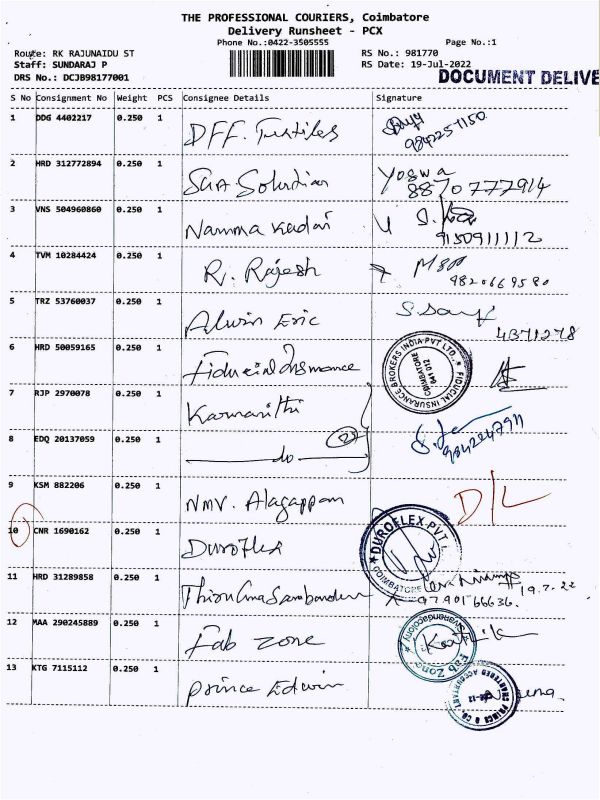 THE PROFESSIONAL COURIERS, Coimbatore
Delivery Runsheet - PCX
Phone No.:0422-3505555 Page No.:1
Route: RK RAJUNAIDU ST RS No.: 981770
Staff: SUNDARAJ P RS Date: 19-Jul-2022
DRS No.: DCJB98177001 DOCUMENT DELIVE
S No Consignment No Weight PCS Consignee Details Signature
1 DDG 4402217 0.250 1 DFF. Textiles 9842257150
2 HRD 312772894 0.250 1 Solution Yoswa 8870777914
3 VNS 504960860 0.250 1 Namma Kadai 9150911112
4 TVM 10284424 0.250 1 R. Rajesh 9820669580
5 TRZ 53760037 0.250 1 Alwin Eric 4371278
6 HRD 50059165 0.250 1 Fiducial Insurance FIDUCIAL INSURANCE BROKERS INDIA PVT LTD., COIMBATORE 641 012
7 RJP 2970078 0.250 1
8 EDQ 20137059 0.250 1 do 9842247911
9 KSM 882206 0.250 1 NMV. Alagappan D/L
10 CNR 1690162 0.250 1 Duroflex DUROFLEX PVT COIMBATORE
11 HRD 31289858 0.250 1 19.7.22 9790166636.
12 MAA 290245889 0.250 1 Fab Zone Fab Zone Sivanandacolony Karthik
13 KTG 7115112 0.250 1 Prince Edwin PRINCE & CO. CHARTERED ACCOUNTANTS